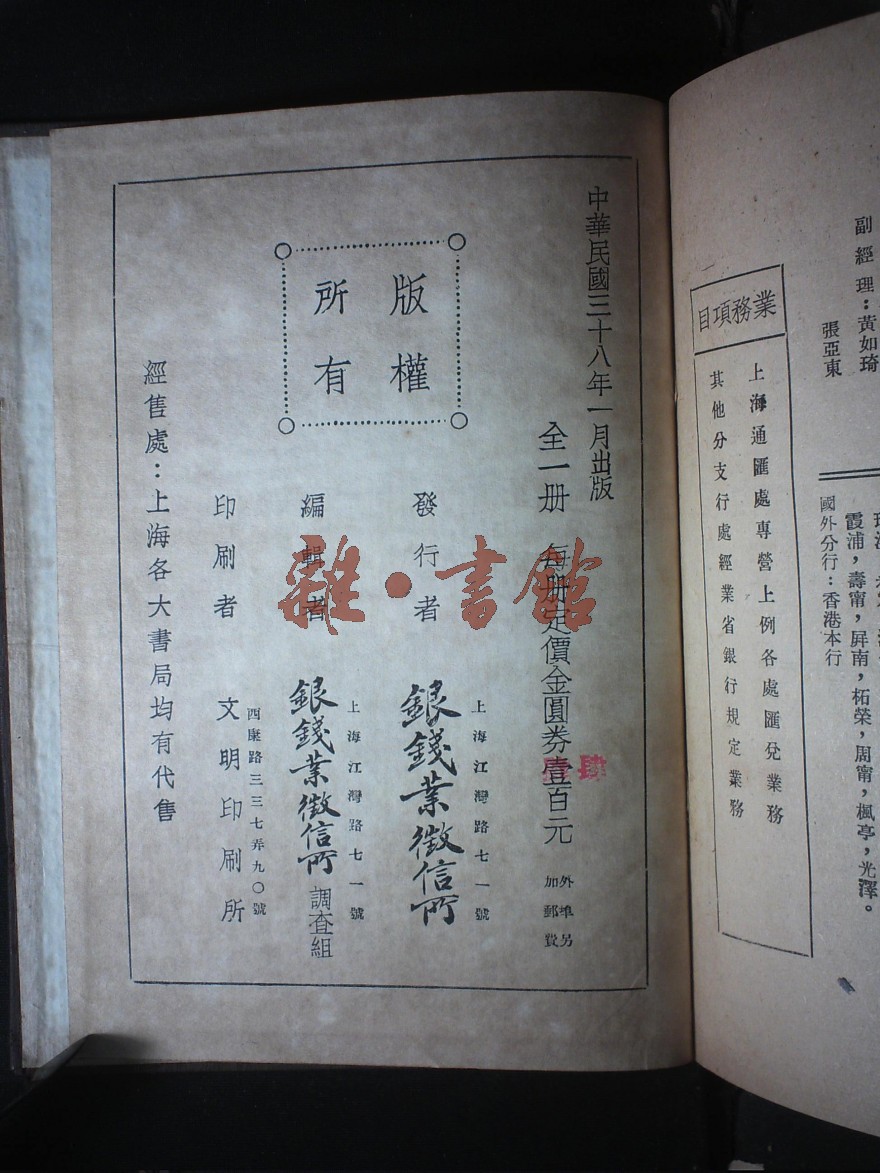 副經理：黃如琦
張亞東
業務項目
上海通匯處專營上例各處匯兌業務
其他分支行處經業省銀行規定業務
霞浦，壽甯，屏南，柘榮，周甯，楓亭，光澤。
國外分行：香港本行
中華民國三十八年一月出版
全一册 每册定價金圓券壹百元
外埠另
加郵費
肆
版權
所有
發行者
上海江灣路七一號
銀錢業徵信所
編輯者
上海江灣路七一號
銀錢業徵信所調查組
印刷者
西康路三三七弄九〇號
文明印刷所
經售處：上海各大書局均有代售
雜·書館